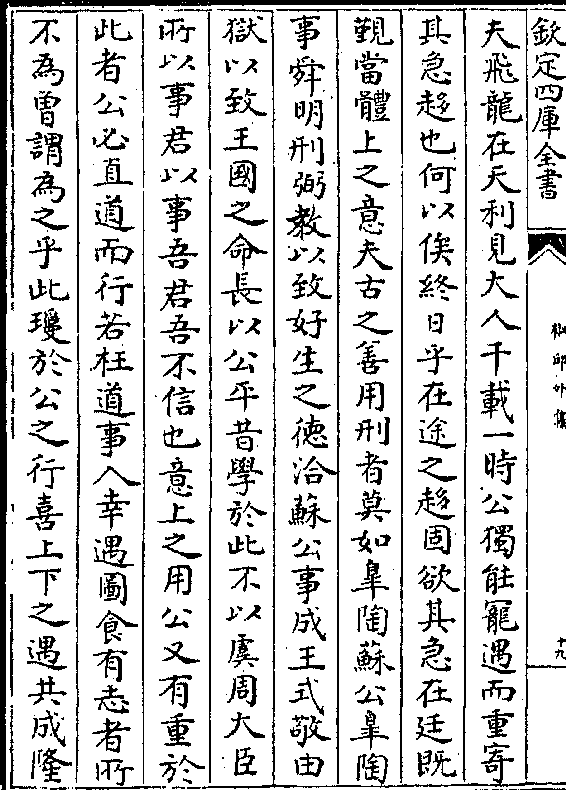 欽定四庫全書
夫飛龍在天利見大人千載一時公獨能寵遇而重寄
其急趍也何以俟終日乎在途之趍固欲其急在廷既
覲當體上之意夫古之善用刑者莫如臯陶蘇公臯陶
事舜明刑弼教以致好生之德洽蘇公事成王式敬由
獄以致王國之命長以公平昔學於此不以虞周大臣
所以事君以事吾君吾不信也意上之用公又有重於
此者公必直道而行若枉道事人幸遇圖食有志者所
不為曽謂為之乎此瓊於公之行喜上下之遇共成隆
十九